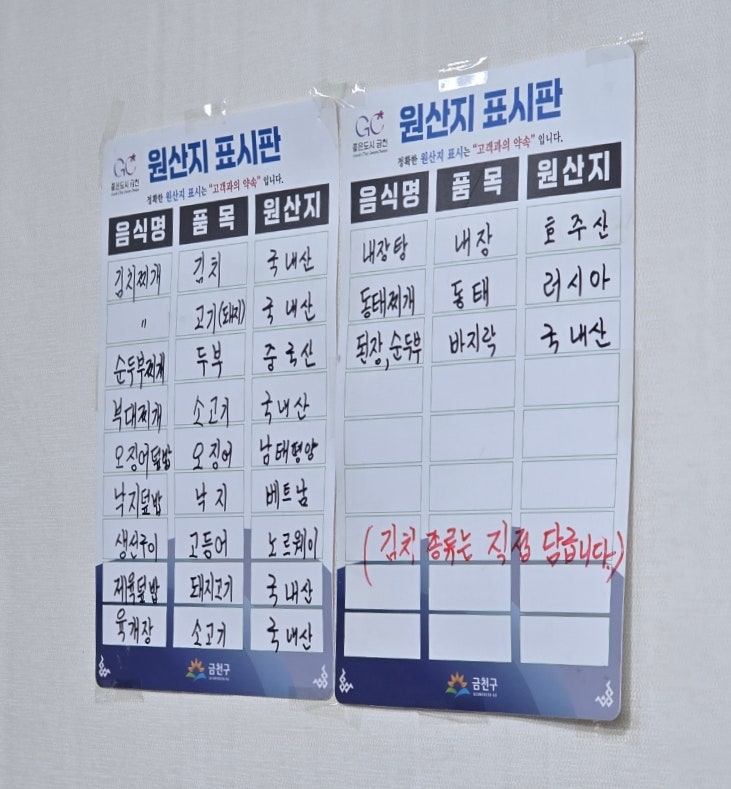 GC
좋은도시 금천
원산지 표시판
정확한 원산지 표시는 "고객과의 약속" 입니다.
음식명 품목 원산지
김치찌개 김치 국내산
〃 고기(돼지) 국내산
순두부찌개 두부 중국산
부대찌개 소고기 국내산
오징어덮밥 오징어 남태평양
낙지덮밥 낙지 베트남
생선구이 고등어 노르웨이
제육덮밥 돼지고기 국내산
육개장 소고기 국내산
금천구
GC
좋은도시 금천
원산지 표시판
정확한 원산지 표시는 "고객과의 약속" 입니다.
음식명 품목 원산지
내장탕 내장 호주산
동태찌개 동태 러시아
된장,순두부 바지락 국내산
(김치 종류는 직접 담급니다.)
금천구